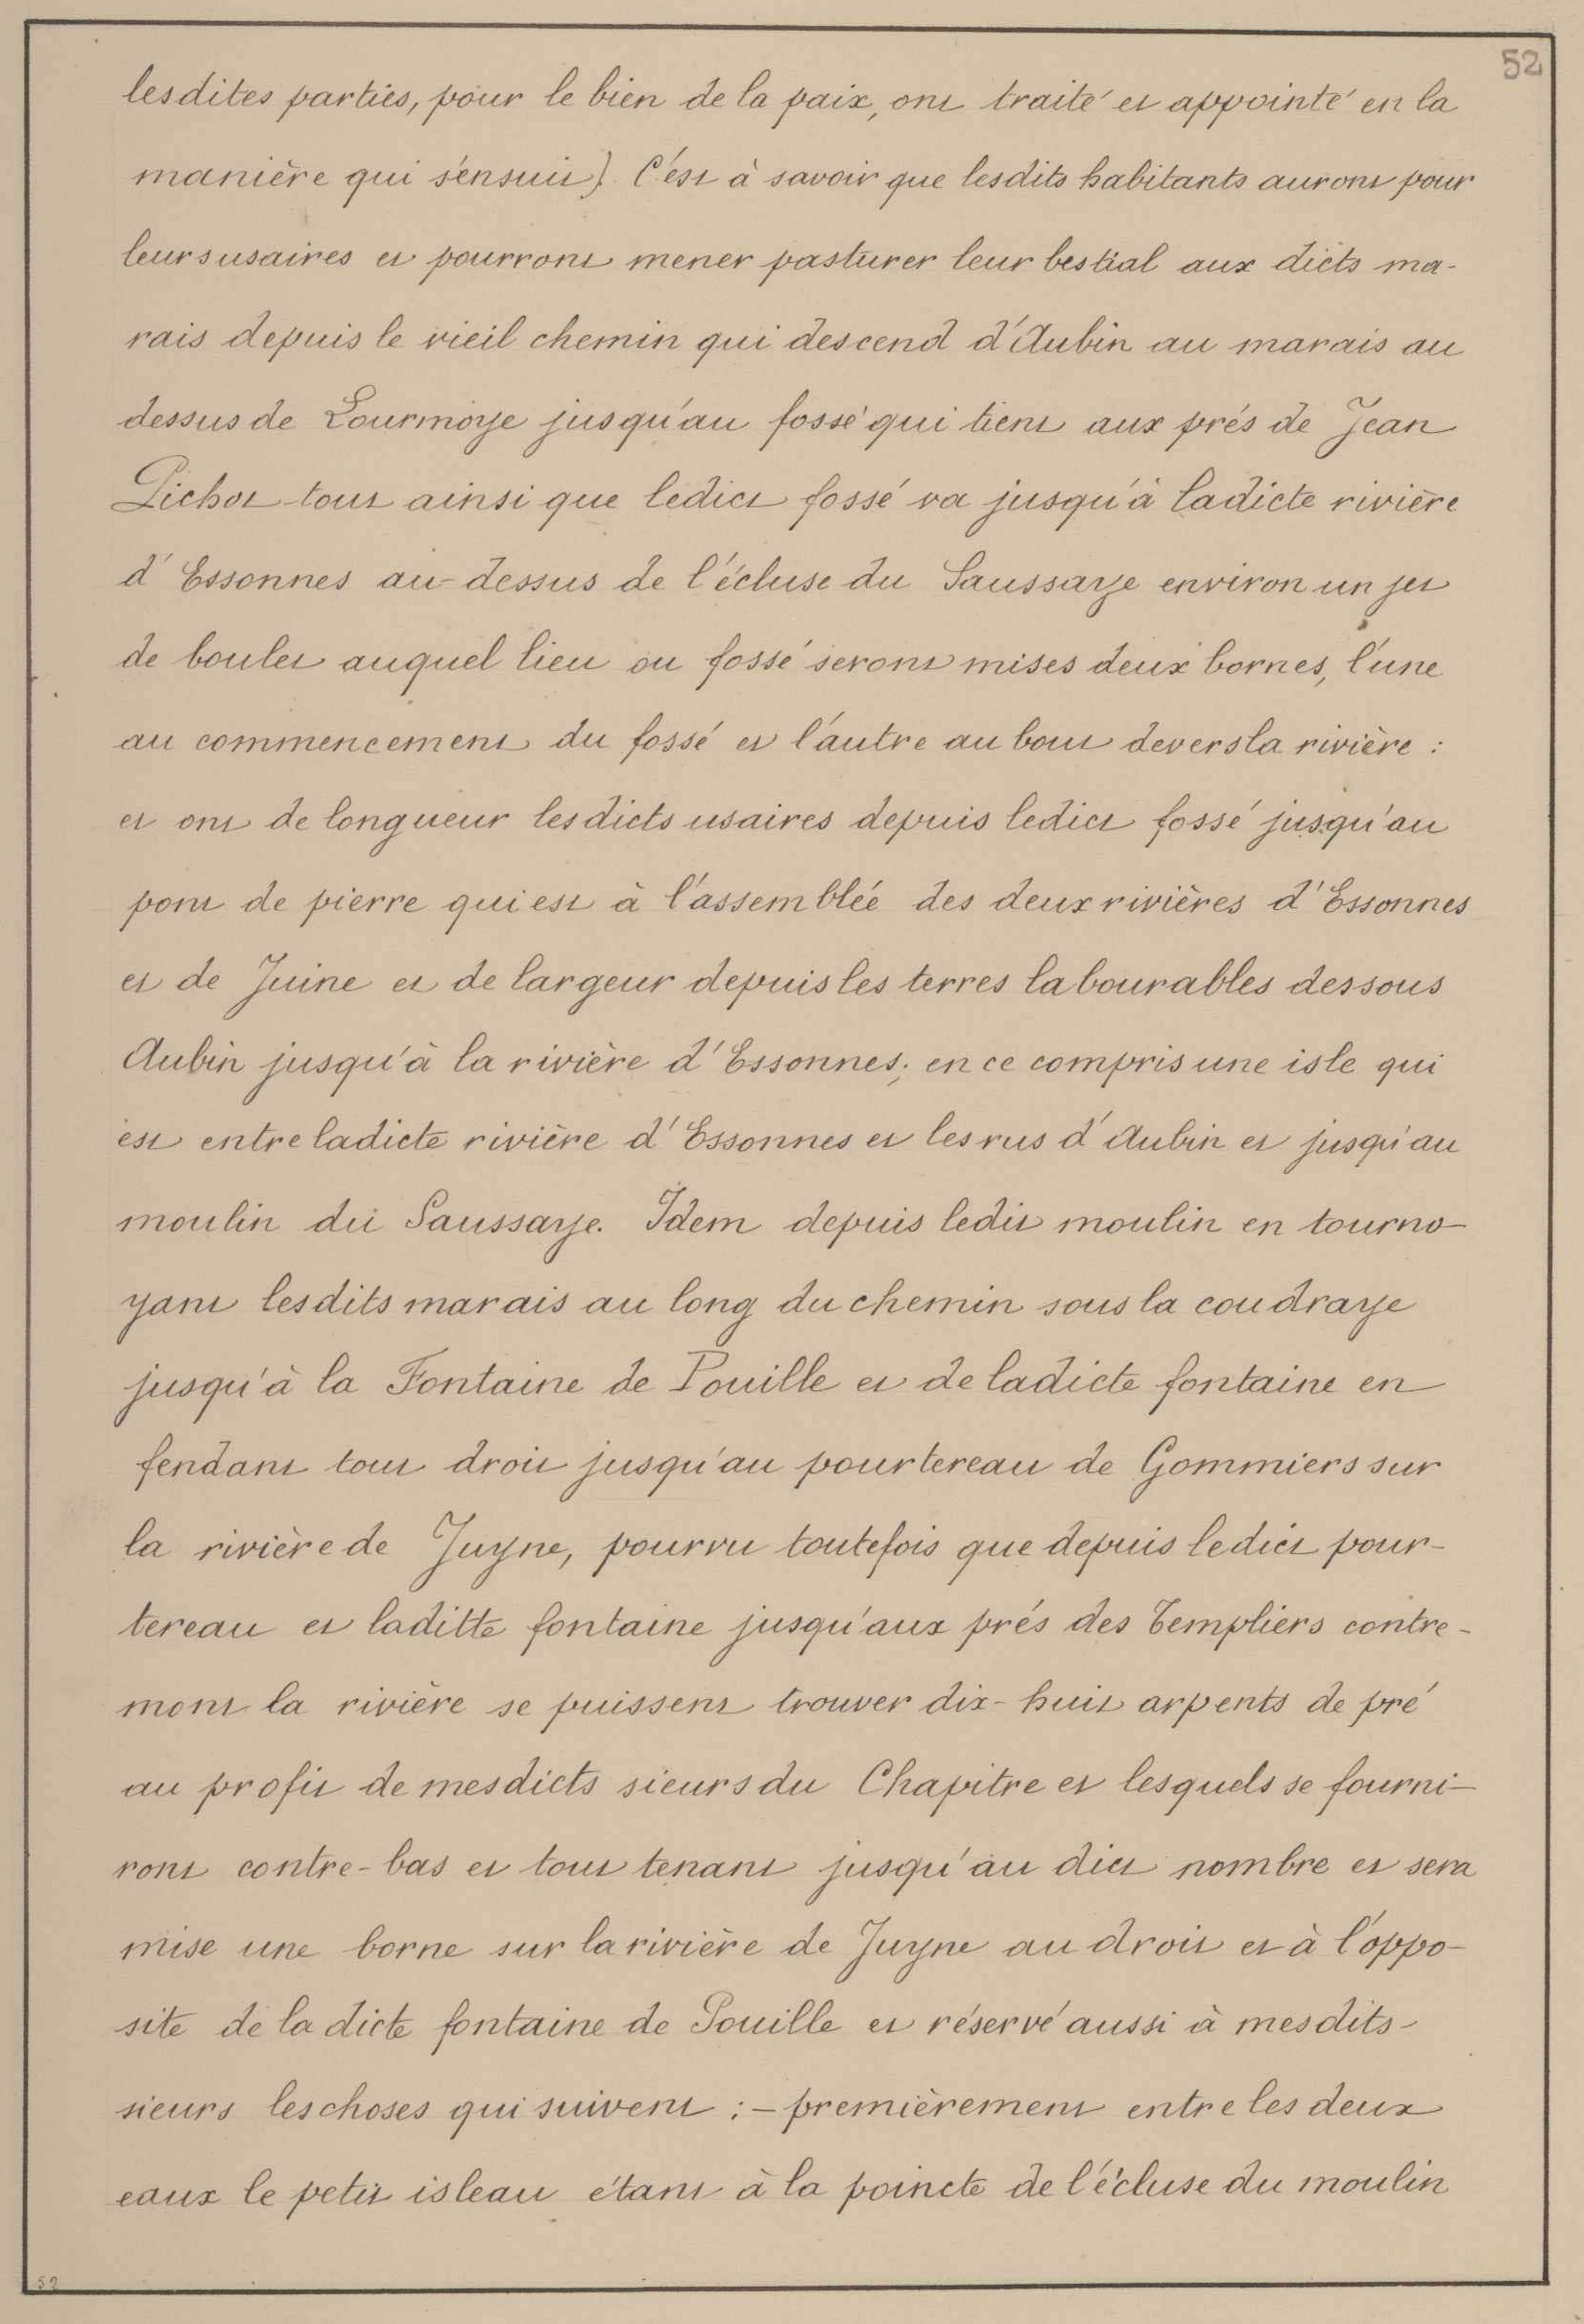 52
lesdites parties, pour le bien de la paix, ont traité et appointé en la
manière qui s'ensuit). C'est à savoir que lesdits habitants auront pour
leurs usaires et pourront mener pasturer leur bestial aux dicts ma-
rais depuis le vieil chemin qui descend d'Aubin au marais au
dessus de Lourmoye jusqu'au fossé qui tient aux prés de Jean
Pichot tout ainsi que ledict fossé va jusqu'à ladicte rivière
d'Essonnes au-dessus de l'écluse du Saussaye environ un jet
de boulet auquel lieu ou fossé seront mises deux bornes, l'une
au commencement du fossé et l'autre au bout devers la rivière :
et ont de longueur lesdicts usaires depuis ledict fossé jusqu'au
pont de pierre qui est à l'assemblée des deux rivières d'Essonnes
et de Juine et de largeur depuis les terres labourables dessous
Aubin jusqu'à la rivière d'Essonnes; en ce compris une isle qui
est entre ladicte rivière d'Essonnes et les rus d'Aubin et jusqu'au
moulin du Saussaye. Idem depuis ledit moulin en tourno-
yant lesdits marais au long du chemin sous la coudraye
jusqu'à la Fontaine de Pouille et de ladicte fontaine en
fendant tout droit jusqu'au pourtereau de Gommiers sur
la rivière de Juyne, pourvu toutefois que depuis ledict pour-
tereau et laditte fontaine jusqu'aux prés des Templiers contre-
mont la rivière se puissent trouver dix-huit arpents de pré
au profit de mesdicts sieurs du Chapitre et lesquels se fourni-
ront contre-bas et tout tenant jusqu'au dict nombre et sera
mise une borne sur la rivière de Juyne au droit et à l'oppo-
site de la dicte fontaine de Pouille et réservé aussi à mesdits-
sieurs les choses qui suivent :- premièrement entre les deux
eaux le petit isleau étant à la poincte de l'écluse du moulin
52